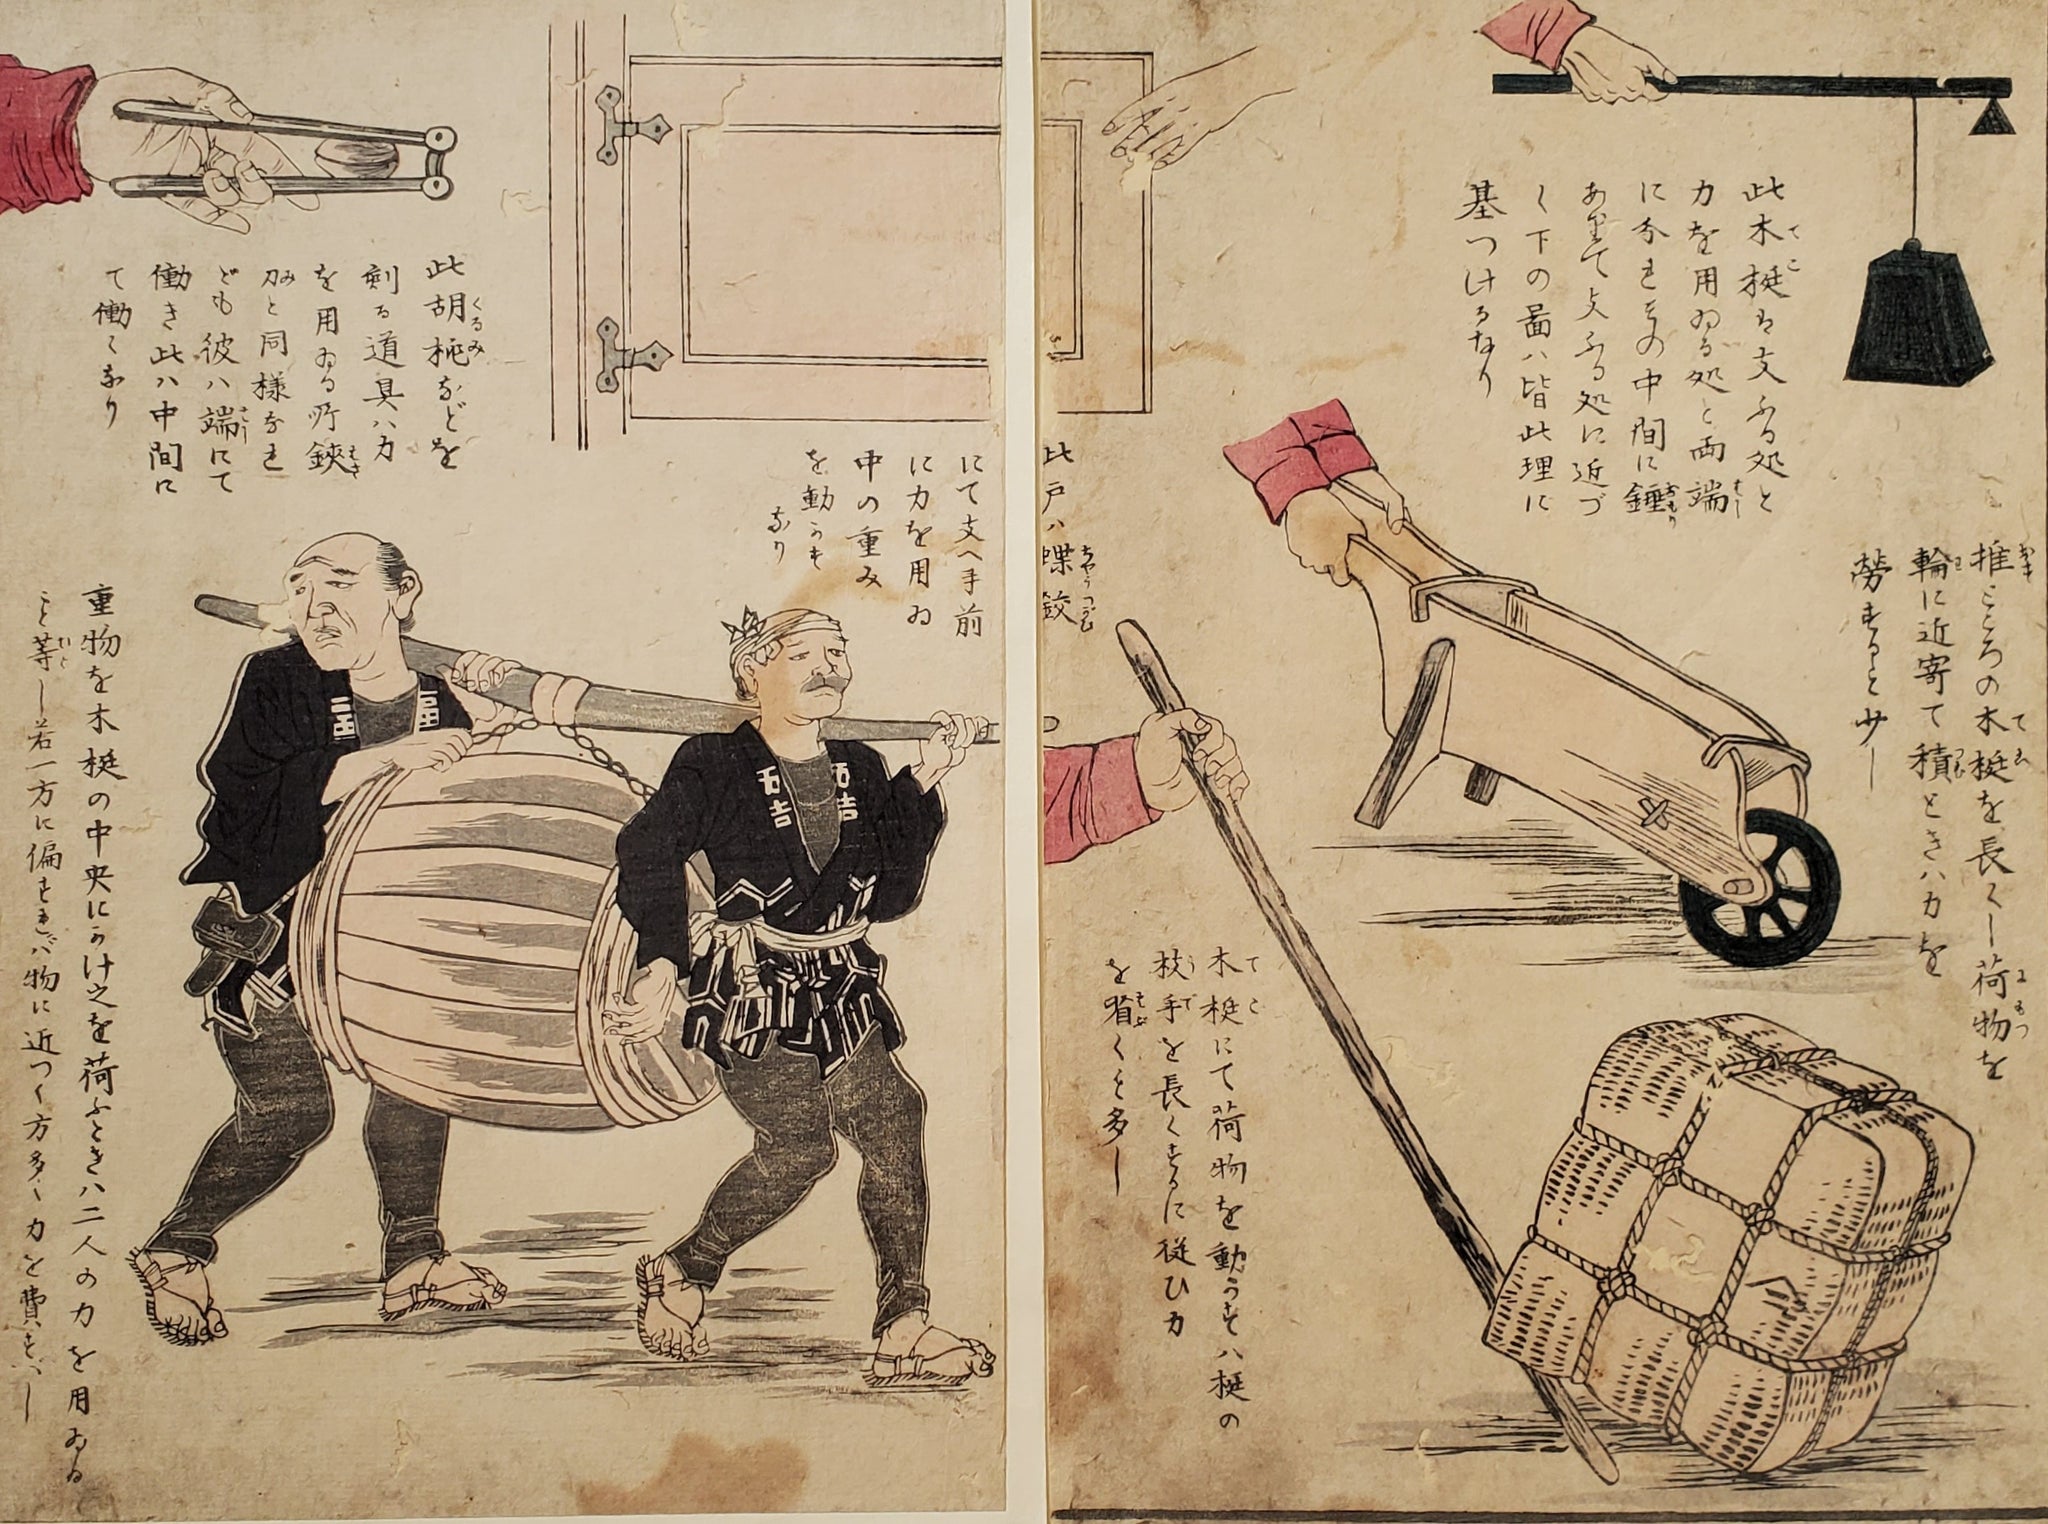 此木梃ハ支ふる処と
力を用ゐる処と両端
に分れその中間に錘
ありて支ふる処に近づ
く下の圖ハ皆此理に
基つけるなり
推ところの木梃を長くし荷物を
輪に近寄て積ときハ力を
労すること少し
木梃にて荷物を動かすハ梃の
枝手を長くするに従ひ力
を省くこと多し
此戸ハ蝶鉸
にて支へ手前
に力を用ゐ
中の重み
を動かす
なり
此胡桃などを
剜る道具ハ力
を用ゐる所鋏
刀と同様なれ
ども彼ハ端にて
働き此ハ中間に
て働くなり
重物を木梃の中央にかけ之を荷ふときハ二人の力を用ゐる
こと等し若一方に偏すれバ物に近つく方多く力を費すべし
五吉
五吉